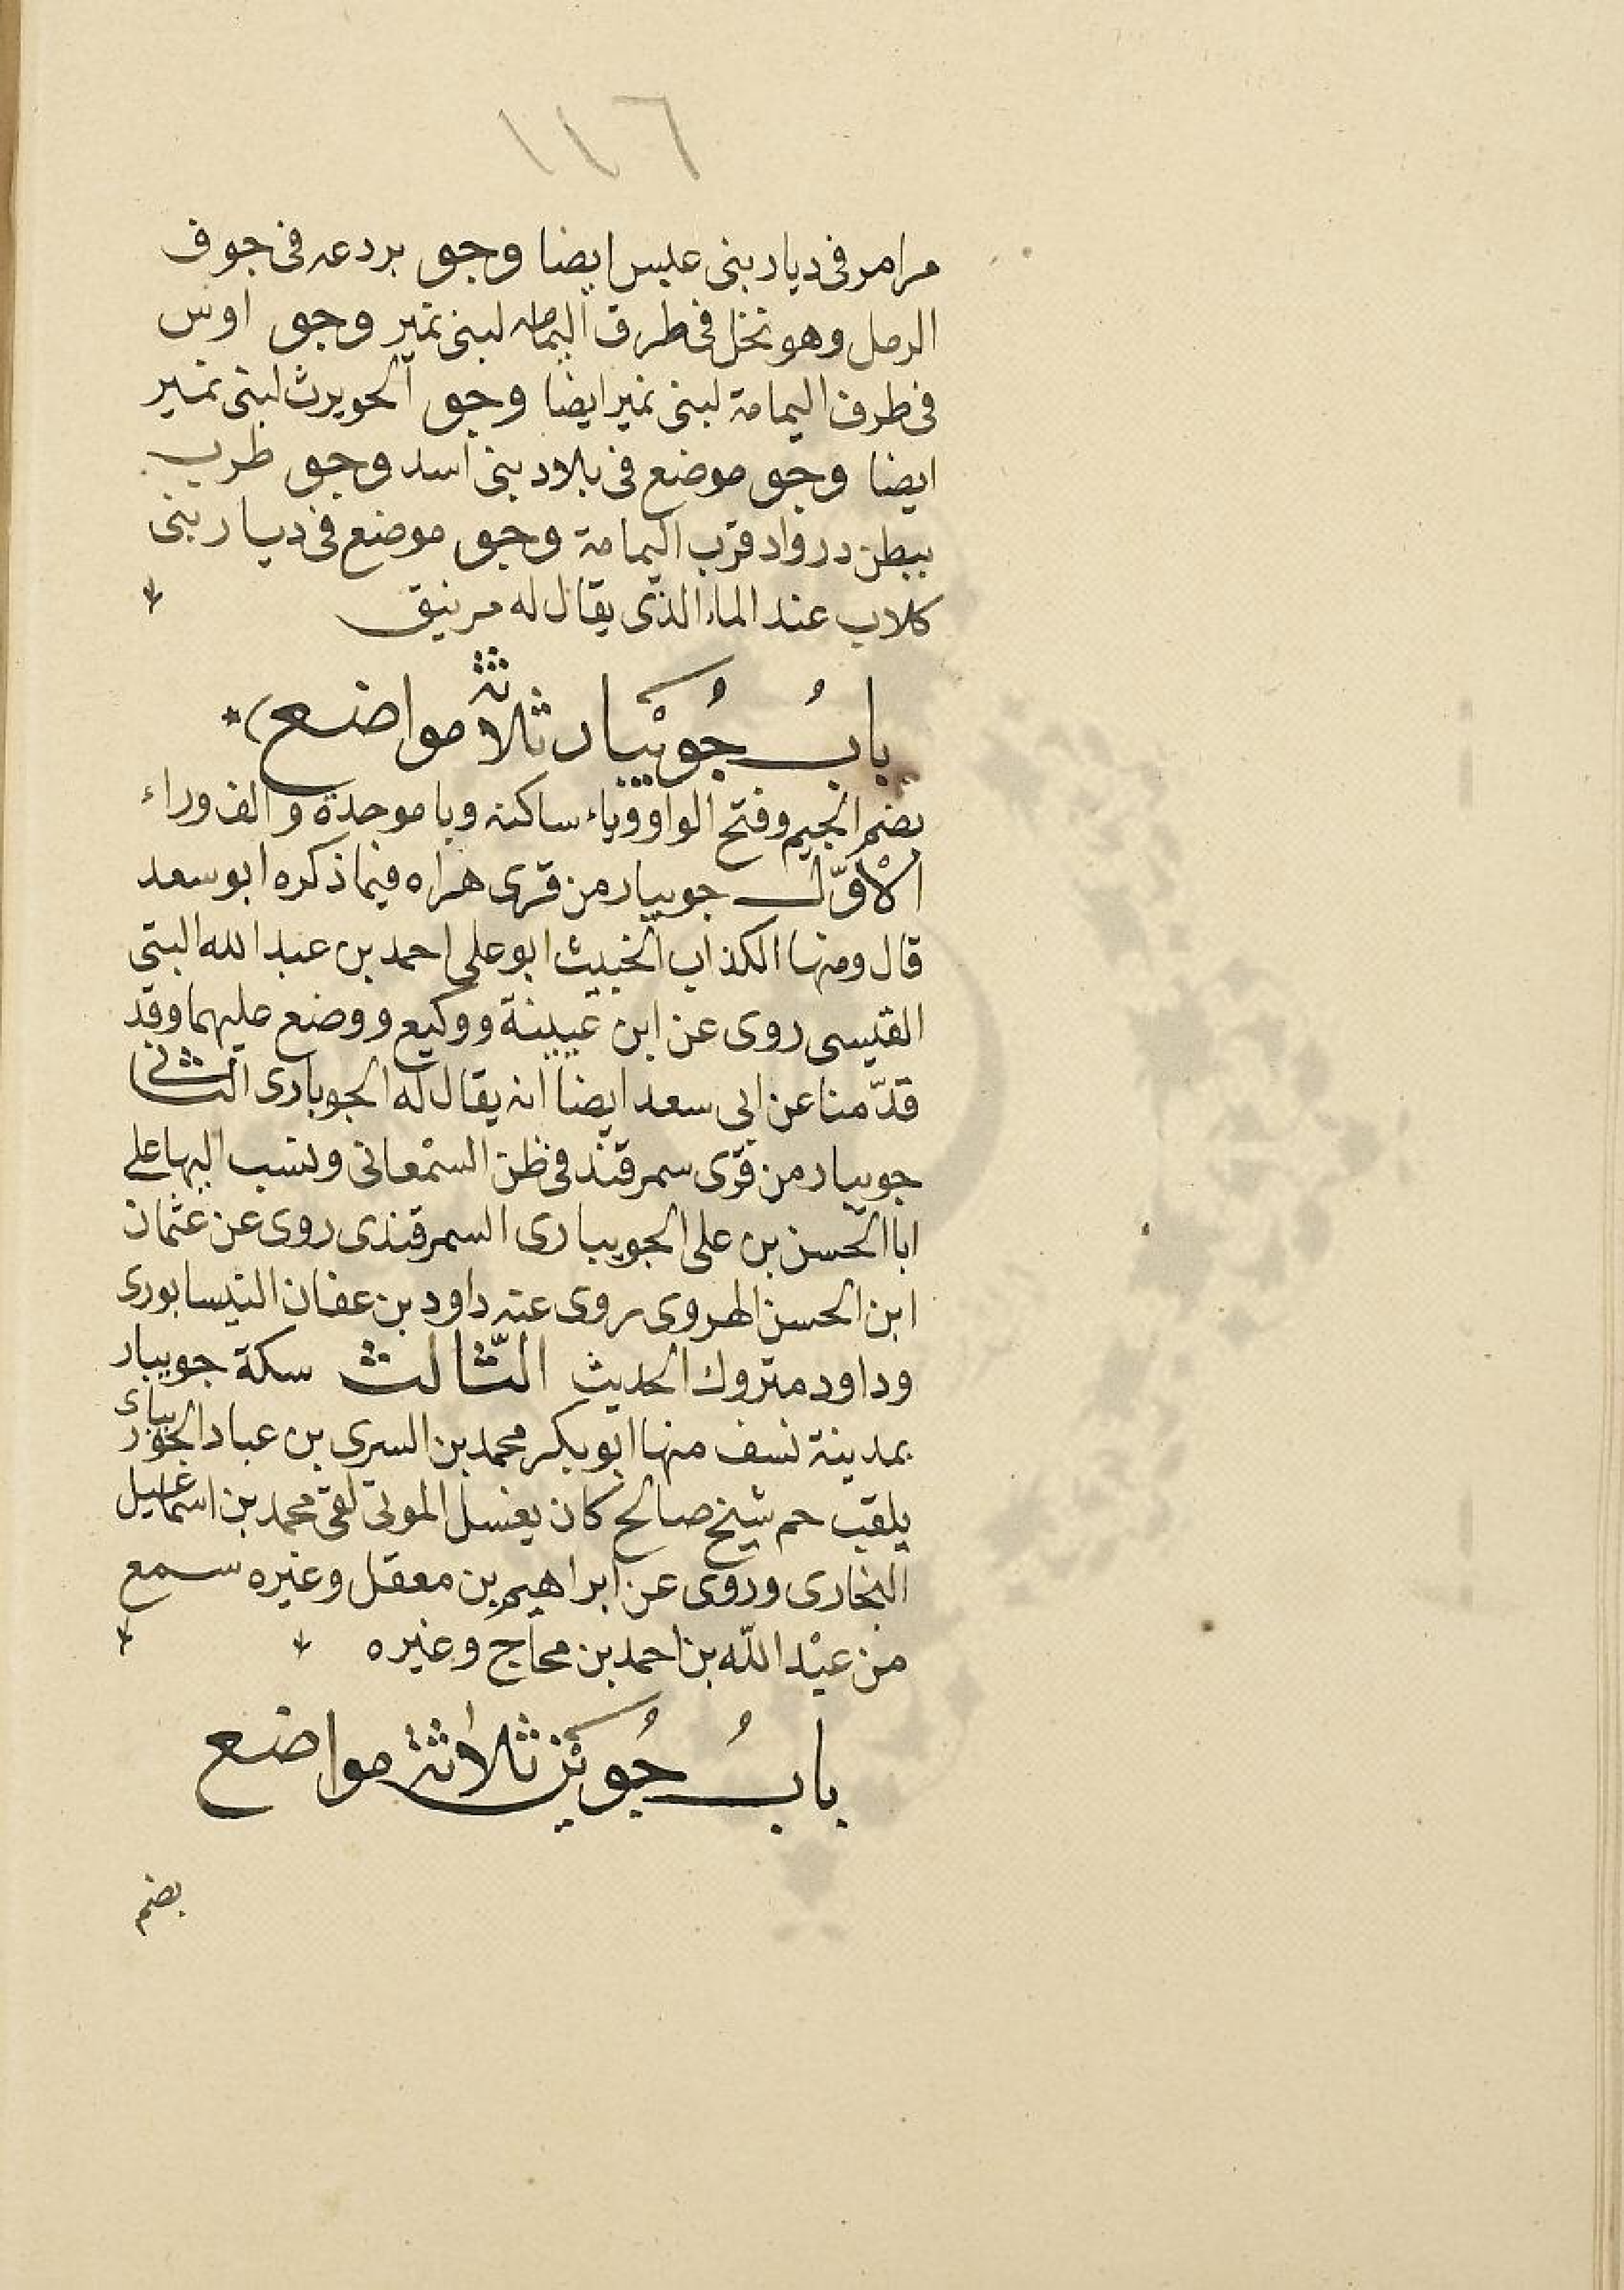 ١١٦
مرامر فى ديار بنى عبس ايضا وجو بردعه فى جوف
الرمل وهو نخل فى طرق اليمامه لبنى نمير وجو اوس
فى طرف اليمامة لبنى نمير ايضا وجو الحويرث لبنى نمير
ايضا وجو موضع فى بلاد بنى اسد وجو طرب
ببطن درواد قرب اليمامة وجو موضع فى ديار بنى
كلاب عند الماء الذى يقال له مرنيق
بابُ جُوَيْبار ثلاثة مواضع
بضم الجيم وفتح الواو وياء ساكنه وبا موحدة والف وراء
الأوّل جويبار من قرى هراه فيما ذكره ابو سعد
قال ومنها الكذاب الخبيث ابو على احمد بن عبد الله التيمى
القيسى روى عن ابن عيينة ووكيع ووضع عليهما وقد
قدّمنا عن ابى سعد ايضا انه يقال له الجوبارى الثانى
جويبار من قرى سمرقند فى ظن السمْعانى ونسب اليها على
ابا الحسن بن على الجويبارى السمرقندى روى عن عثمان
ابن الحسن الهروى روى عنه داود بن عفان النيسابورى
وداود متروك الحديث الثّالث سكة جويبار
بمدينة نسف منها ابو بكر محمد بن السرى بن عباد الجويبارى
يلقب حم شيخ صالح كان يغسل الموتى لقى محمد بن اسماعيل
البخارى وروى عن ابراهيم بن معقل وغيره سمع
من عبْد اللّه بن احمد بن محاج وغيره
بابُ جُوَيْن ثلاثة مواضع
بضم